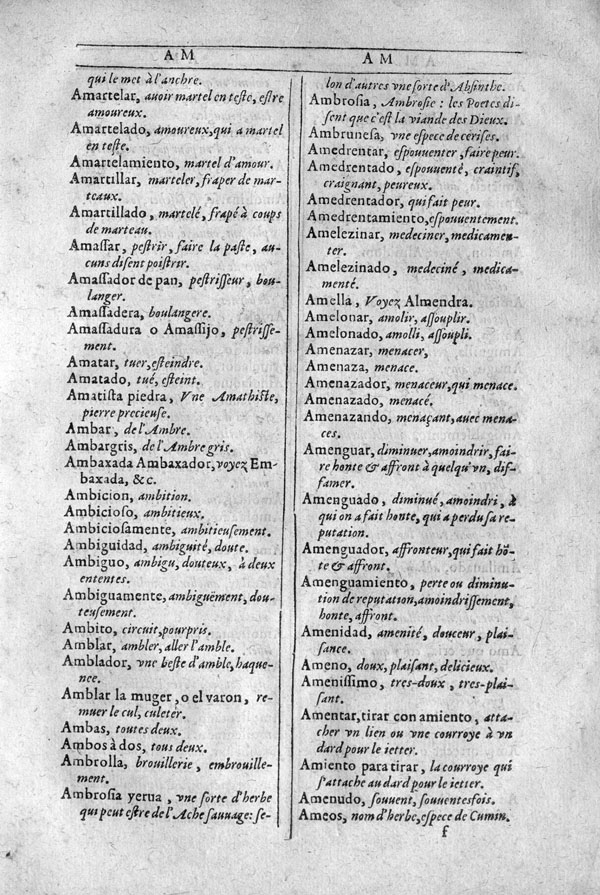 A M
qui le met à l'anchre.
Amartelar, auoir martel en teste, estre
amoureux.
Amartelado, amoureux, qui a martel
en teste.
Amartelamiento, martel d'amour.
Amartillar, marteler, fraper de mar-
teaux.
Amartillado, martelé, frapé à coups
de marteau.
Amaſſar, peſtrir, faire la paſte, au-
cuns diſent poiſtrir.
Amaſſador de pan, peſtriſſeur, bou-
langer.
Amaſſadera, boulangere.
Amaſſadura o Amaſſijo, peſtriſſe-
ment.
Amatar, tuer, esteindre.
Amatado, tué, esteint.
Amatista piedra, Vne Amathiste,
pierre precieuse.
Ambar, de l'Ambre.
Ambargris, de l'Ambre gris.
Ambaxada Ambaxador, voyez Em-
baxada, &c.
Ambicion, ambition.
Ambicioſo, ambitieux.
Ambicioſamente, ambitieuſement.
Ambiguidad, ambiguité, doute.
Ambiguo, ambigu, douteux, à deux
ententes.
Ambiguamente, ambiguëment, dou-
teuſement.
Ambito, circuit, pourpris.
Amblar, ambler, aller l'amble.
Amblador, vne beſte d'amble, haque-
nee.
Amblar la muger, o el varon, re-
muer le cul, culeter.
Ambas, toutes deux.
Ambos à dos, tous deux.
Ambrolla, brouillerie, embrouille-
ment.
Ambroſia yerua, vne ſorte d'herbe
qui peut eſtre de l'Ache ſauuage: ſe-
A M
lon d'autres vne ſorte d'Abſinthe.
Ambroſia, Ambroſie: les Poetes di-
ſent que c'eſt la viande des Dieux.
Ambruneſa, vne eſpece de ceriſes.
Amedrentar, eſpouuenter, faire peur.
Amedrentado, eſpouuenté, craintif,
craignant, peureux.
Amedrentador, qui fait peur.
Amedrentamiento, eſpouuentement.
Amelezinar, medeciner, medicamen-
ter.
Amelezinado, medeciné, medica-
menté.
Amella, Voyez Almendra.
Amelonar, amolir, aſſouplir.
Amelonado, amolli, aſſoupli.
Amenazar, menacer,
Amenaza, menace.
Amenazador, menaceur, qui menace.
Amenazado, menacé.
Amenazando, menaçant, auec mena-
ces.
Amenguar, diminuer, amoindrir, fai-
re honte & affront à quelqu'vn, diſ-
famer.
Amenguado, diminué, amoindri, à
qui on a fait honte, qui a perdu ſa re-
putation.
Amenguador, affronteur, qui fait hō-
te & affront.
Amenguamiento, perte ou diminu-
tion de reputation, amoindriſſement,
honte, affront.
Amenidad, amenité, douceur, plai-
ſance.
Ameno, doux, plaiſant, delicieux.
Ameniſſimo, tres-doux, tres-plai-
ſant.
Amentar, tirar con amiento, atta-
cher vn lien ou vne courroye à vn
dard pour le ietter.
Amiento para tirar, la courroye qui
s'attache au dard pour le ietter.
Amenudo, ſouuent, ſouuentesfois.
Ameos, nom d'herbe, eſpece de Cumin.
f